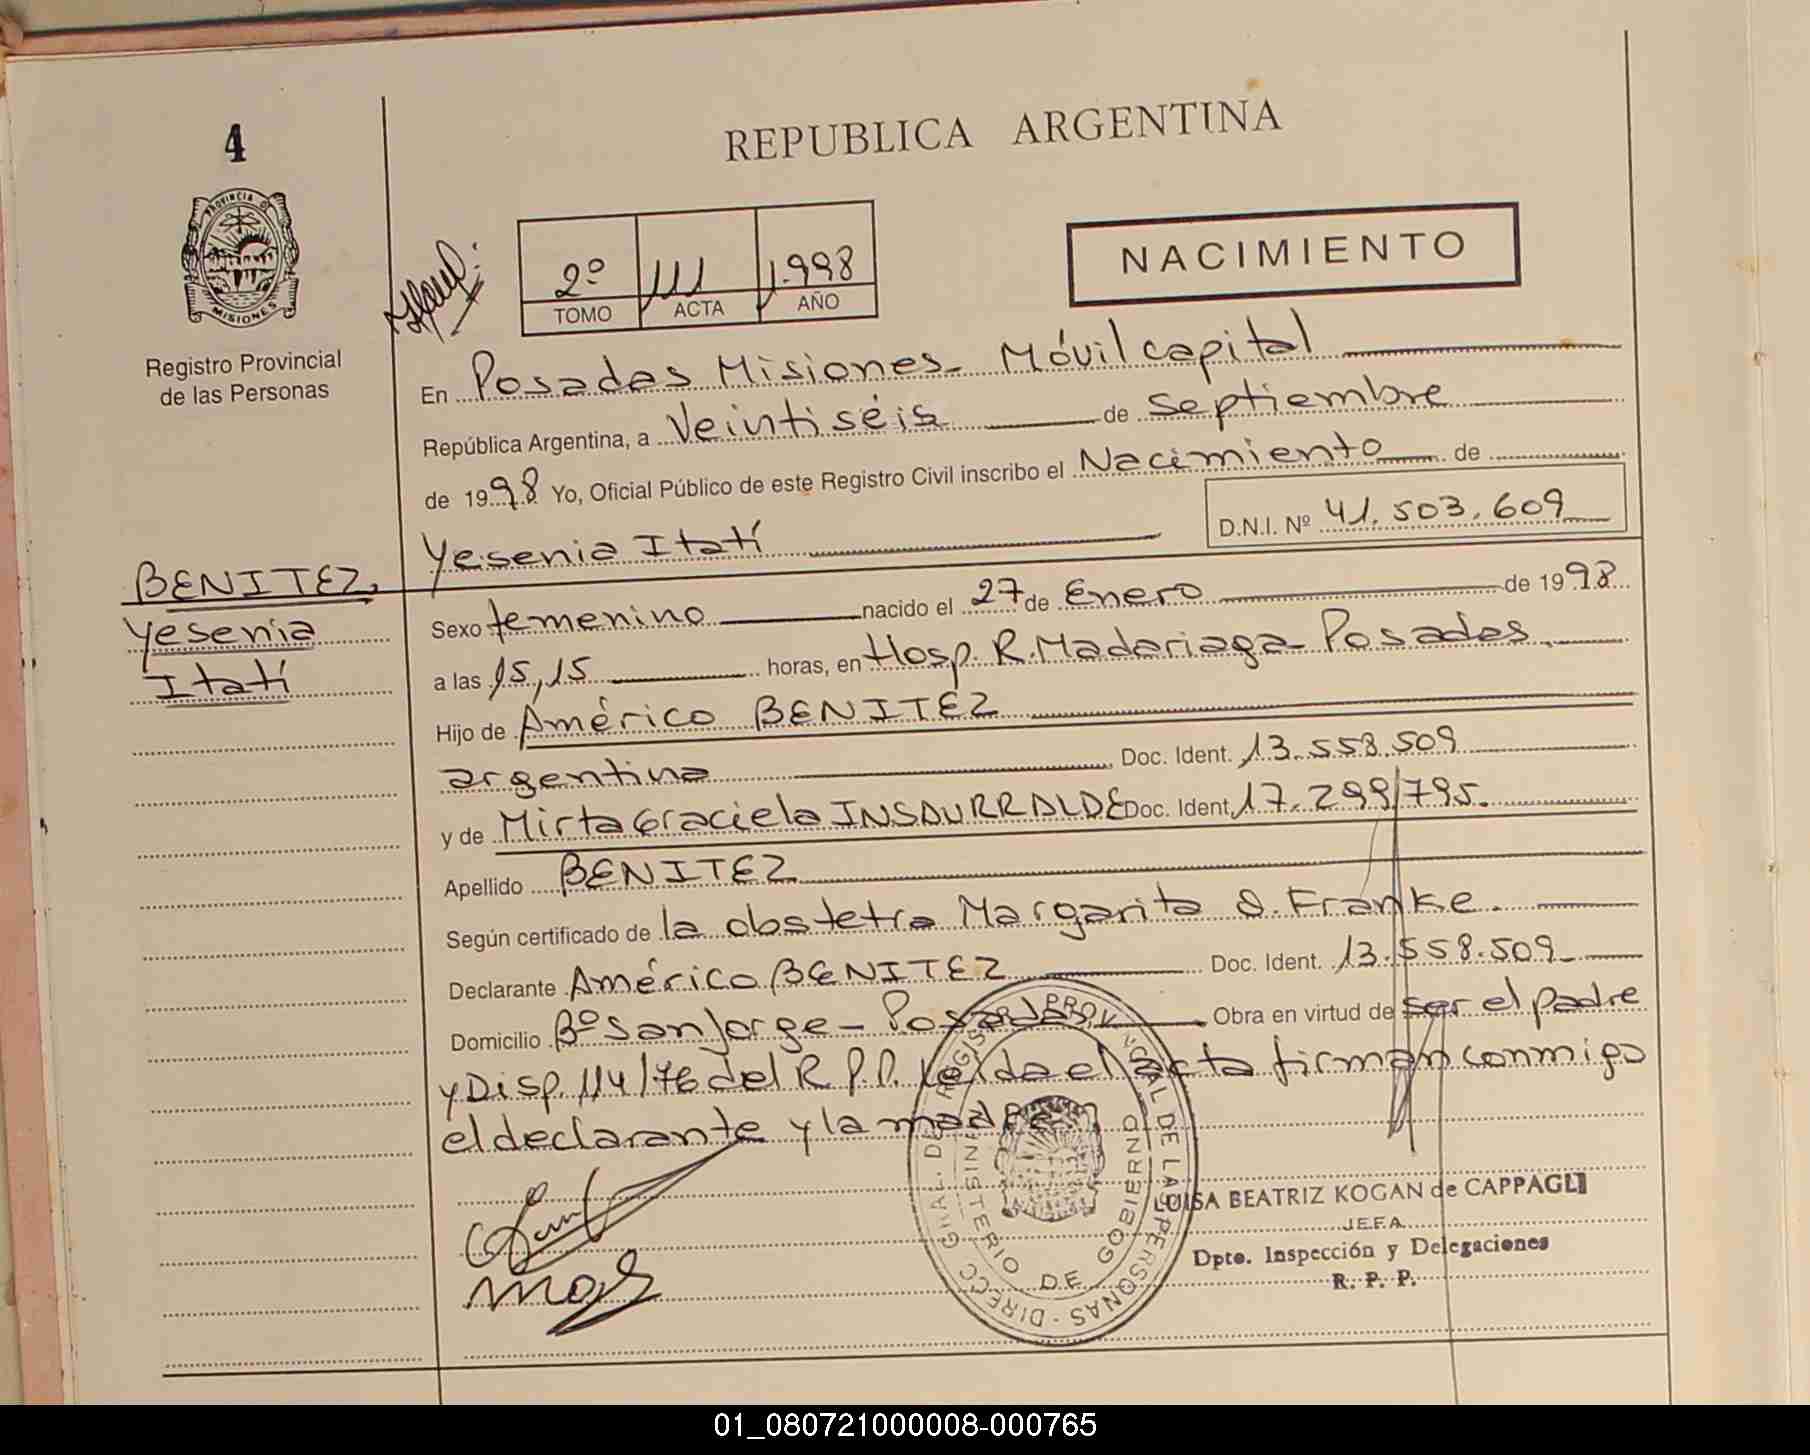 4
REPUBLICA ARGENTINA
PROVINCIA DE
MISIONES
Registro Provincial
de las Personas
2º 111 1.998
TOMO ACTA AÑO
NACIMIENTO
En Posadas Misiones - Móvil capital
República Argentina, a Veintiséis de septiembre
de 1998 Yo, Oficial Público de este Registro Civil inscribo el Nacimiento de
D.N.I. Nº 41.503.609
Yesenia Itatí
BENITEZ,
Yesenia
Itatí
Sexo femenino nacido el 27 de Enero de 1998
a las 15,15 horas, en Hosp. R. Madariaga - Posadas.
Hijo de Américo BENITEZ
argentina Doc. Ident. 13.558.509
y de Mirta Graciela INSAURRALDE Doc. Ident. 17.299.795.
Apellido BENITEZ
Según certificado de la obstetra Margarita S. Franke.
Declarante Américo BENITEZ Doc. Ident. 13.558.509
Domicilio Bº San Jorge - Posadas, Obra en virtud de ser el padre
y Disp. 114/76 del R.P.P. Leída el acta firman conmigo
el declarante y la madre
DIRECC. GRAL. DEL REGISTRO PROVINCIAL DE LAS PERSONAS
MINISTERIO DE GOBIERNO
LUISA BEATRIZ KOGAN de CAPPAGLI
JEFA
Dpto. Inspección y Delegaciones
R. P. P.
01_080721000008-000765